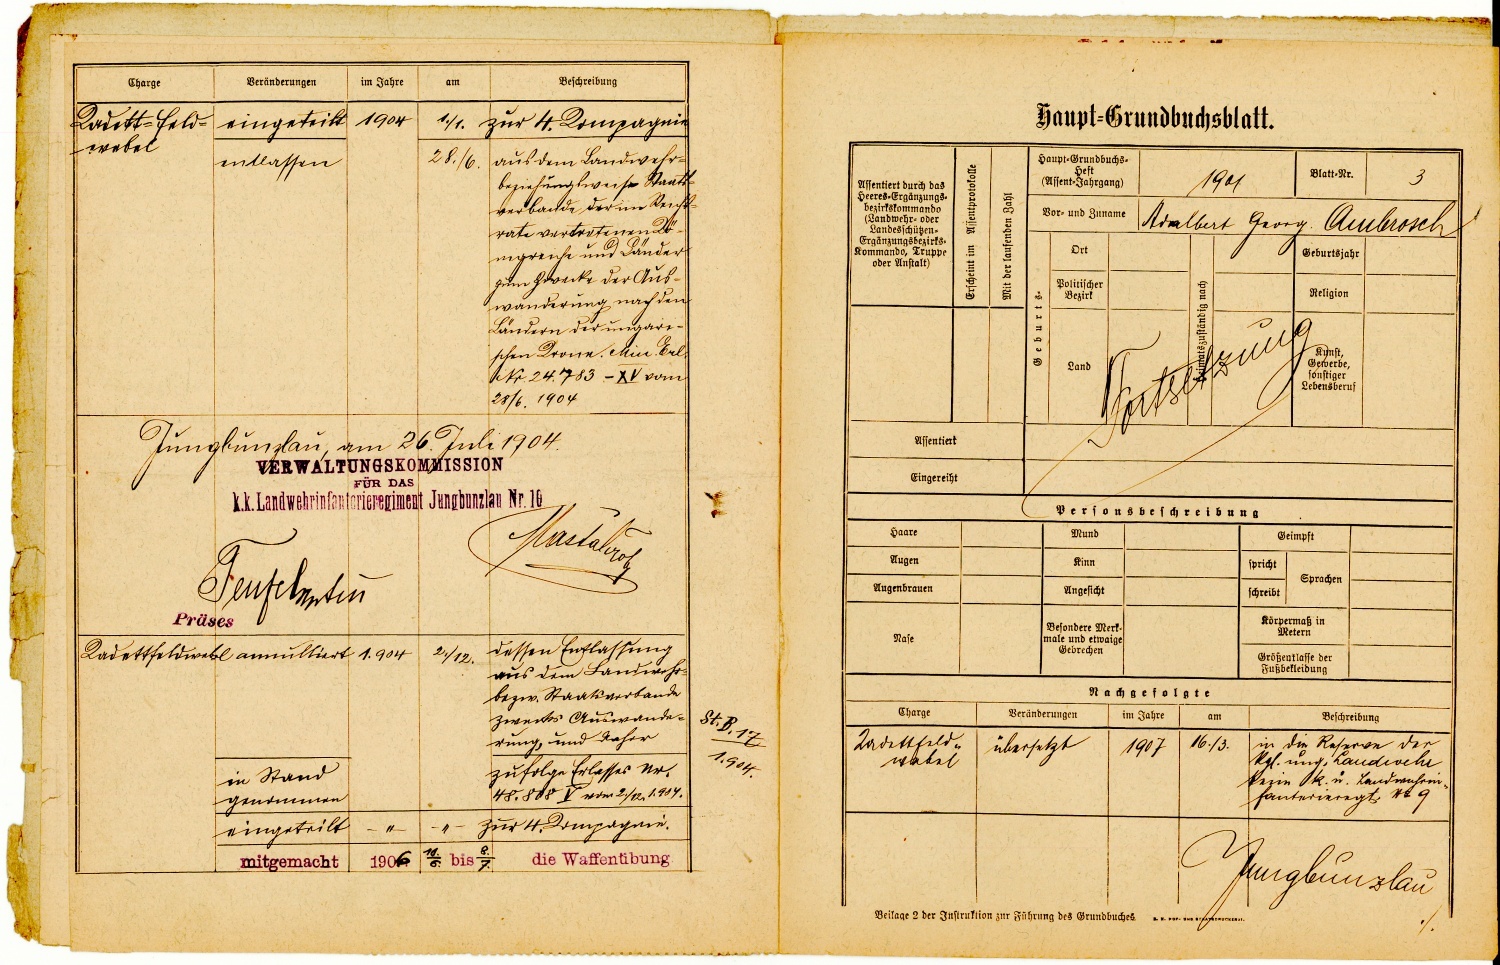 Charge Veränderungen im Jahre am Beschreibung
Kadett=Feld= eingeteilt 1904 1./1. zur 4. Kompagnie
webel
entlassen 28./6. aus dem Landwehr=
beziehungsweise Staats=
verbande der im Reichs=
rate vertretenen Kö=
nigreiche und Länder
zum Zwecke der Aus=
wanderung nach den
Ländern der ungari=
schen Krone. Min. Erl.
Nr 24.783 – XV vom
28/6. 1904
Jungbunzlau, am 26. Juli 1904.
VERWALTUNGSKOMMISSION
FÜR DAS
k.k. Landwehrinfanterieregiment Jungbunzlau Nr. 10
Präses
Kadettfeldwebel annulliert 1.904 2./12. dessen Entlassung
aus dem Landwehr=
bezw. Staatsverbande
zwecks Auswande=
rung, und daher
St. B. 17
1.904.
in Stand
genommen
zufolge Erlasses Nr.
48.808 V vom 2./12. 1.904.
eingeteilt – „ – – „ – zur 4. Kompagnie.
mitgemacht 1906 10./6. bis 8./7. die Waffenübung
Haupt=Grundbuchsblatt.
Assentiert durch das
Heeres=Ergänzungs=
bezirkskommando
(Landwehr= oder
Landesschützen=
Ergänzungsbezirks=
Kommando, Truppe
oder Anstalt)
Erscheint im Assentprotokolle
Mit der laufenden Zahl
Haupt=Grundbuchs=
Heft
(Assent=Jahrgang)
1901
Blatt=Nr. 3
Vor= und Zuname Adalbert Georg Ambrosch
Geburts=
Ort
Politischer
Bezirk
Land
Heimatszuständig nach
Geburtsjahr
Religion
Kunst,
Gewerbe,
sonstiger
Lebensberuf
Fortsetzung
Assentiert
Eingereiht
Personsbeschreibung
Haare Mund Geimpft
Augen Kinn spricht Sprachen
Augenbrauen Angesicht schreibt
Nase
Besondere Merk=
male und etwaige
Gebrechen
Körpermaß in
Metern
Größenklasse der
Fußbekleidung
Nachgefolgte
Charge Veränderungen im Jahre am Beschreibung
Kadettfeld= übersetzt 1907 16./3. in die Reserve der
webel kgl. ung. Landwehr
beim k. u. Landwehrin=
fanterieregt. Nr 9
Jungbunzlau
./.
Beilage 2 der Instruktion zur Führung des Grundbuches. K. K. HOF- UND STAATSDRUCKEREI.